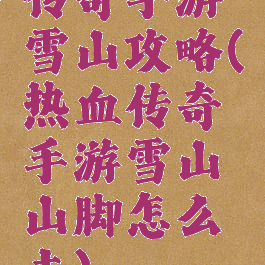 传奇手游
雪山攻略(
热血传奇
手游雪山
山脚怎么
走)